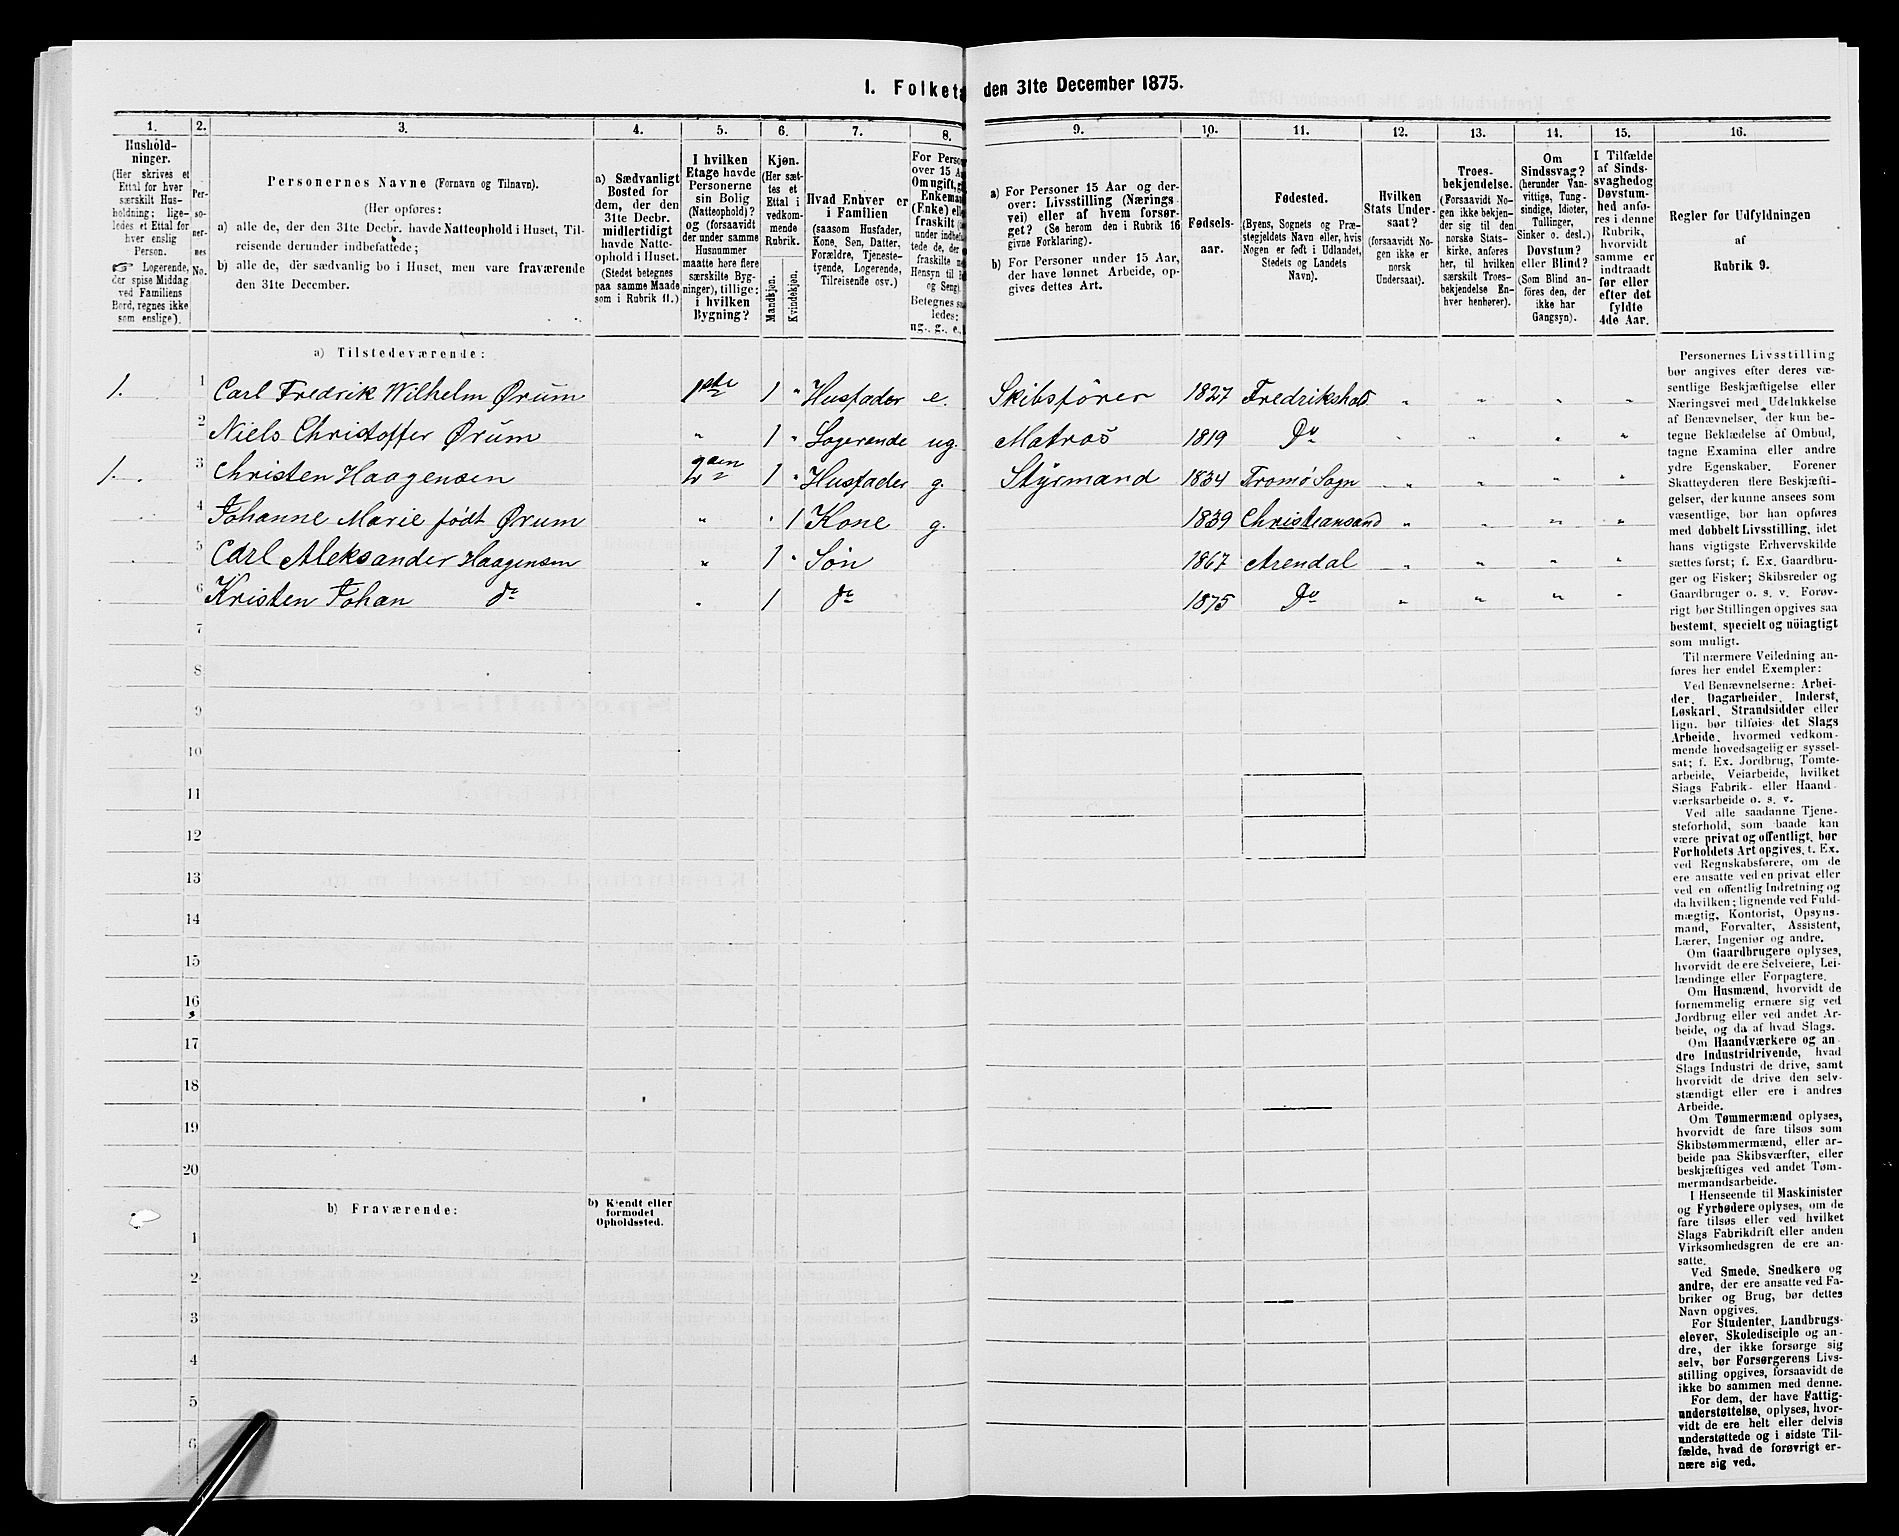 I. Folketæ
den 31te December 1875.
1.
2.
3.
4.
5.
6.
7.
8.
9.
10.
11.
12.
13.
14.
15.
16.
Hushold-
ninger.
(Her skrives et
Ettal for hver
særskilt Hus-
holdning; lige-
ledes et Ettal for
hver enslig
Person.
☞ Logerende,
der spise Middag
ved Familiens
Bord, regnes ikke
som enslige).
Per-
so-
ner-
nes
No.
Personernes Navne (Fornavn og Tilnavn).
(Her opføres:
a) alle de, der den 31te Decbr. havde Natteophold i Huset, Til-
reisende derunder indbefattede;
b) alle de, der sædvanlig bo i Huset, men vare fraværende
den 31te December.
a) Sædvanligt
Bosted for
dem, der den
31te Decbr.
midlertidigt
havde Natte-
ophold i Huset.
(Stedet betegnes
paa samme Maade
som i Rubrik 11.)
I hvilken
Etage havde
Personerne
sin Bolig
(Natteophold)?
og (forsaavidt
der under samme
Husnummer
maatte høre flere
særskilte Byg-
ninger), tillige:
i hvilken
Bygning?
Kjøn.
(Her sæt-
tes et
Ettal i
vedkom-
mende
Rubrik.)
Mandkjøn.
Kvindekjøn.
Hvad Enhver er
i Familien
(saasom Husfader,
Kone, Søn, Datter,
Forældre, Tjeneste-
tyende, Logerende,
Tilreisende osv.)
For Perso
over 15 A
Om ugift, g
Enkema
(Enke) ell
fraskilt
under indbe
tede de, der
fraskilte
Hensyn til B
og Seng).
Betegnes s
ledes:
ug., g., e.
a) For Personer 15 Aar og der-
over: Livsstilling (Nærings
vei) eller af hvem forsør-
get? (Se herom den i Rubrik 16
givne Forklaring).
b) For Personer under 15 Aar,
der have lønnet Arbeide, op-
gives dettes Art.
Fødsels-
aar.
Fødested.
(Byens, Sognets og Præ-
stegjeldets Navn eller, hvis
Nogen er født i Udlandet,
Stedets og Landets
Navn).
Hvilken
Stats Under-
saat?
(forsaavidt No-
gen ikke er
norsk
Undersaat).
Troes-
bekjendelse.
(Forsaavidt No-
gen ikke bekjen-
der sig til den
norske Stats-
kirke, anføres
her, til hvilken
særskilt Troes-
bekjendelse En-
hver henhører).
Om
Sindssvag?
(herunder Van-
vittige, Tung-
sindige, Idioter,
Tullinger,
Sinker o. desl.)
Døvstum?
eller Blind?
(Som Blind an-
føres den, der
ikke har
Gangsyn).
I Tilfælde
af Sinds-
svaghed og
Døvstum-
hed anfø-
res i denne
Rubrik,
hvorvidt
samme er
indtraadt
før eller
efter det
fyldte
4de Aar.
Regler for Udfyldningen
af
Rubrik 9.
a) Tilstedeværende:
1. 1 Carl Fredrik Wilhelm Ørum 1ste 1 " Husfader e. Skibsfører 1827 Fredrikshald " " " "
2 Niels Christoffer Ørum " 1 " Logerende ug. Matros 1819 Do " " " "
1. 3 Christen Haagensen 2den 1 " Husfader g. Styrmand 1834 Tromø Sogn " " " "
4 Johanne Marie født Ørum " " 1 Kone g. 1839 Christiansand " " " "
5 Carl Aleksander Haagensen " 1 " Søn 1867 Arendal " " " "
6 Kristen Johan do " 1 do 1875 Do " " " "
7
8
9
10
11
12
13
14
15
16
17
18
19
20
b) Fraværende:
b) Kjendt eller
formodet
Opholdssted.
1
2
3
4
5
6
Personernes Livsstilling
bør angives efter deres væ-
sentlige Beskjæftigelse eller
Næringsvei med Udelukkelse
af Benævnelser, der kun be-
tegne Beklædelse af Ombud,
tagne Examina eller andre
ydre Egenskaber. Forener
Skatteyderen flere Beskjæfti-
gelser, der kunne ansees som
væsentlige, bør han opføres
med dobbelt Livsstilling, idet
hans vigtigste Erhvervskilde
sættes først; f. Ex. Gaardbru-
ger og Fisker; Skibsreder og
Gaardbruger o. s. v. Forøv-
rigt bør Stillingen opgives saa
bestemt, specielt og nöiagtigt
som muligt.
Til nærmere Veiledning an-
føres her endel Exempler:
Ved Benævnelserne: Arbei-
der, Dagarbeider, Inderst,
Løskarl, Strandsidder eller
lign. bør tilføies det Slags
Arbeide, hvormed vedkom-
mende hovedsagelig er syssel-
sat; f. Ex. Jordbrug, Tomte-
arbeide, Veiarbeide, hvilket
Slags Fabrik- eller Haand-
værksarbeide o. s. v.
Ved alle saadanne Tjene-
steforhold, som baade kan
være privat og offentligt, bør
Forholdets Art opgives, f. Ex.
ved Regnskabsførere, om de
ere ansatte ved en privat eller
ved en offentlig Indretning og
da hvilken; lignende ved Fuld-
mægtig, Kontorist, Opsyns-
mand, Forvalter, Assistent,
Lærer, Ingeniør og andre.
Om Gaardbrugere oplyses,
hvorvidt de ere Selveiere, Lei-
lændinge eller Forpagtere.
Om Husmænd, hvorvidt de
fornemmelig ernære sig ved
Jordbrug eller ved andet Ar-
beide, og da af hvad Slags.
Om Haandværkere og an
dre Industridrivende, hvad
Slags Industri de drive, samt
hvorvidt de drive den selv-
stændigt eller ere i andres
Arbeide.
Om Tømmermænd oplyses,
hvorvidt de fare tilsøs som
Skibstømmermænd, eller ar-
beide paa Skibsværfter, eller
beskjæftiges ved andet Tøm-
mermandsarbeide.
I Henseende til Maskinister
og Fyrbødere oplyses, om de
fare tilsøs eller ved hvilket
Slags Fabrikdrift eller anden
Virksomhedsgren de ere an-
satte.
Ved Smede, Snedkere og
andre, der ere ansatte ved Fa-
briker og Brug, bør dettes
Navn opgives.
For Studenter, Landbrugs-
elever, Skoledisciple og an-
dre, der ikke forsørge sig
selv, bør Forsørgerens Livs-
stilling opgives, forsaavidt de
ikke bo sammen med denne.
For dem, der have Fattig-
understøttelse, oplyses, hvor-
vidt de ere helt eller delvis
understøttede og i sidste Til-
fælde, hvad de forøvrigt er-
nære sig ved.